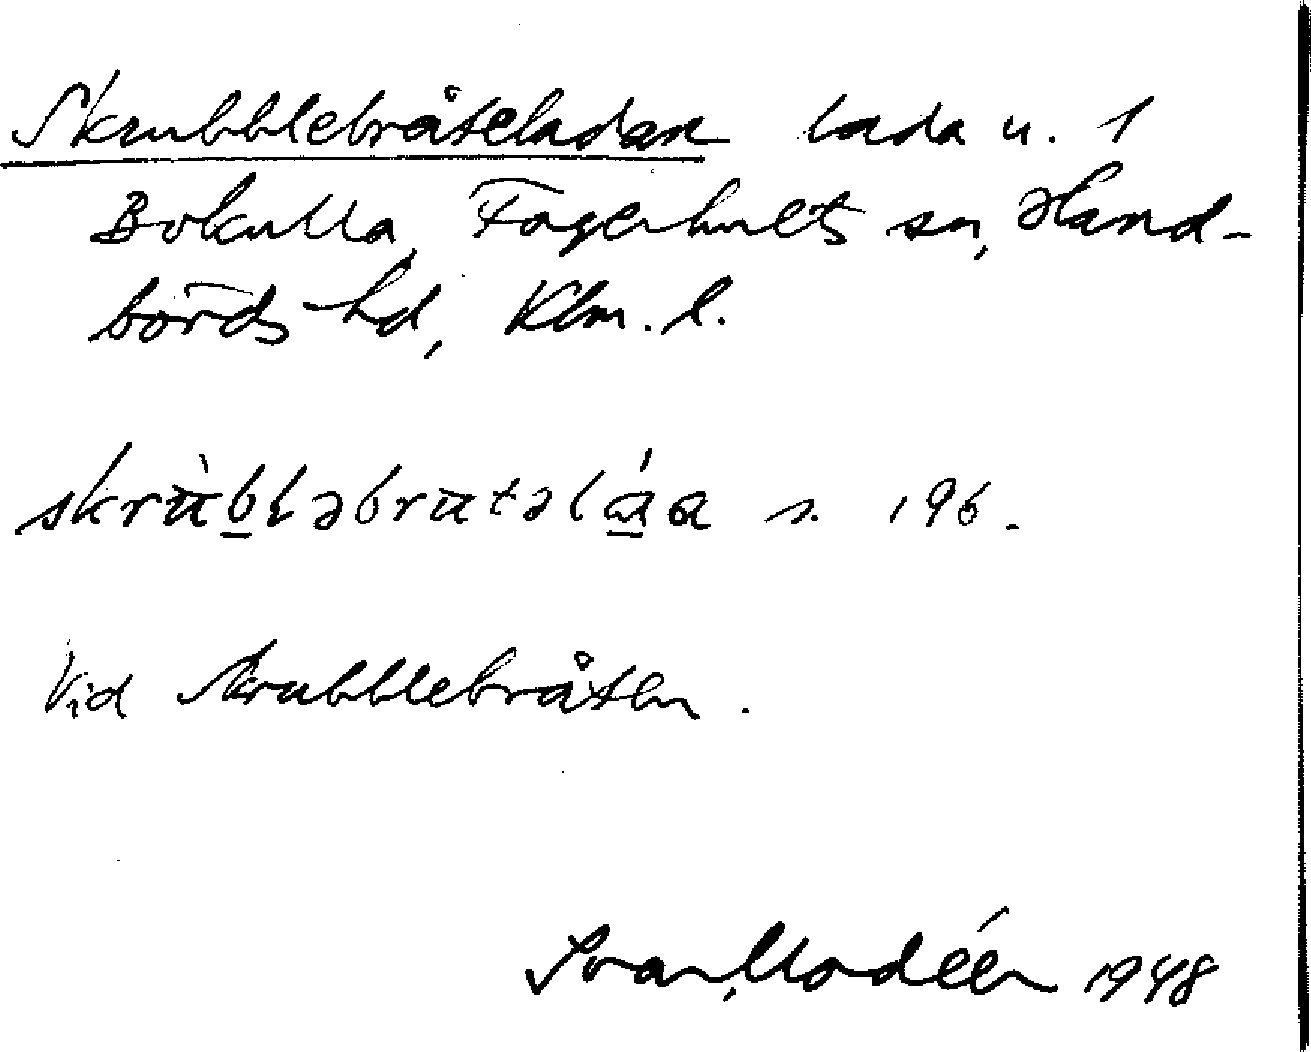 Skrubblebråteladan lada u. 1
Bokulla, Fagerhults sn, Hand-
börds hd, Klm. l.
skrùbləbrutəláa s. 196.
Vid Skrubblebråten.
Ivar Modéer 1948